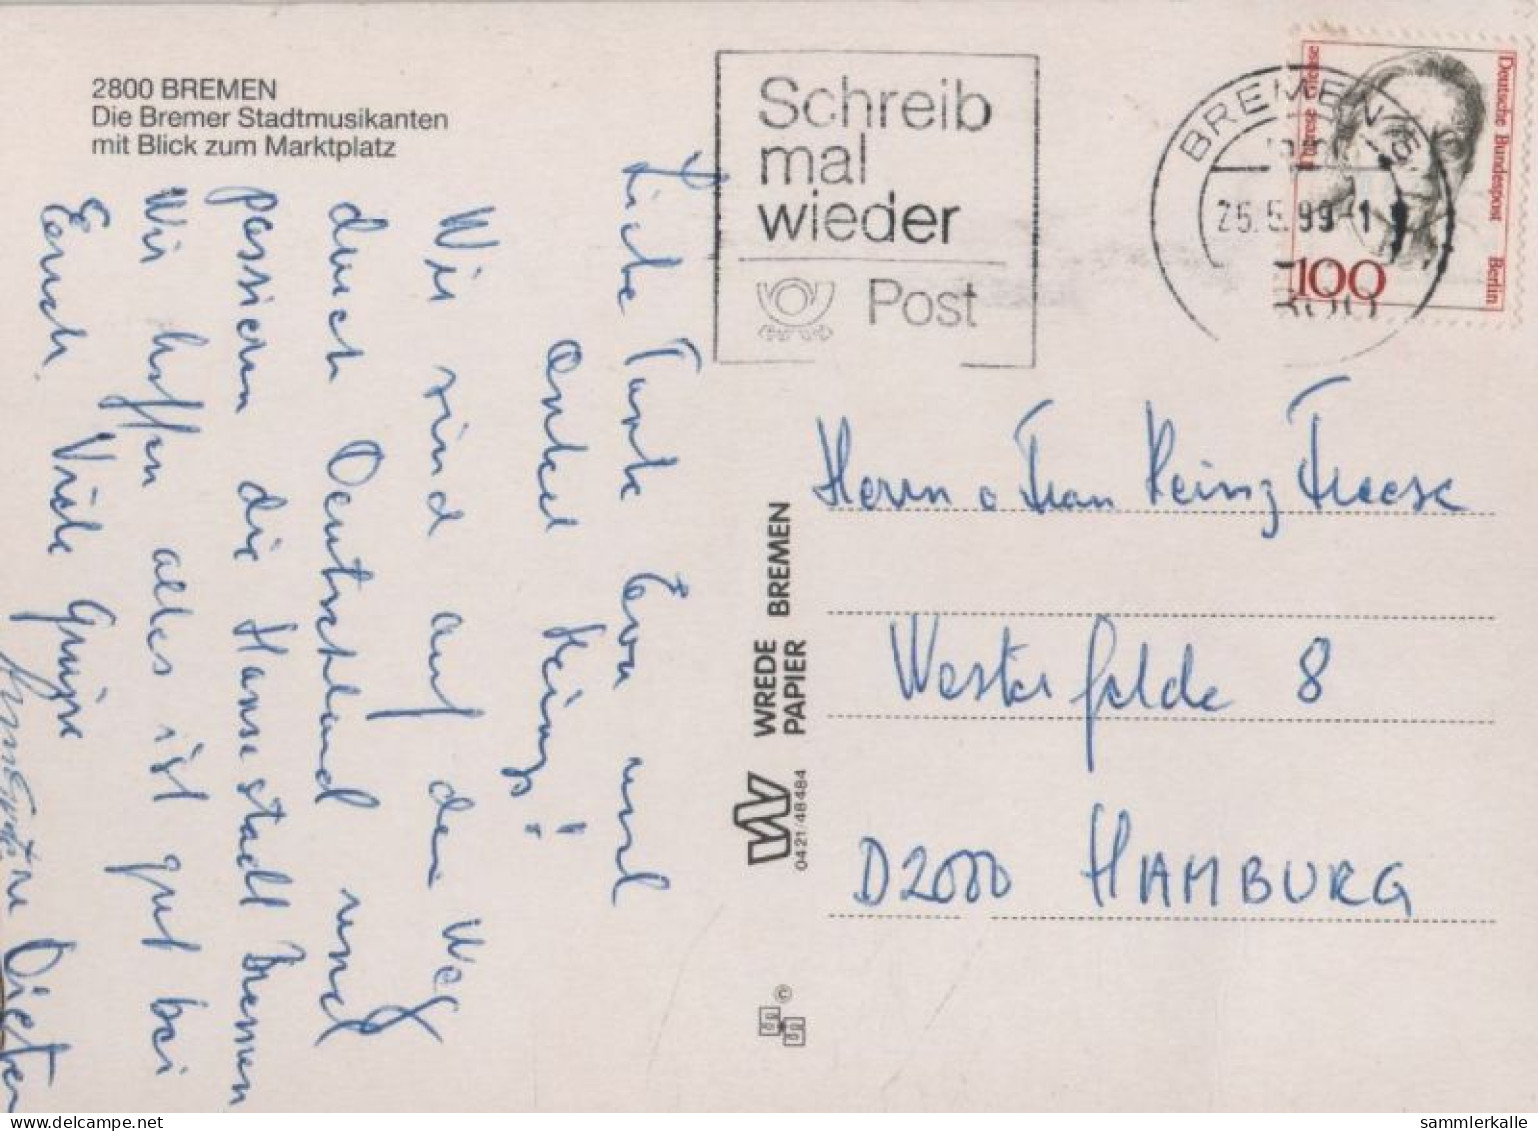 2800 BREMEN
Die Bremer Stadtmusikanten
mit Blick zum Marktplatz
Schreib
mal
wieder
Post
BREMEN
25.5.99-1
Therese Giehse
Deutsche Bundespost Berlin
100
Liebe Tante Eva und
Onkel Heinz!
Wir sind auf dem Weg
durch Deutschland und
passieren die Hansestadt Bremen
Wir hoffen alles ist gut bei
Euch. Viele Grüsse
Dieter
WREDE
PAPIER BREMEN
0421/48484
©
Herrn o Frau Heinz Freese
Westerfelde 8
D2000 HAMBURG
delcampe.net
sammlerkalle